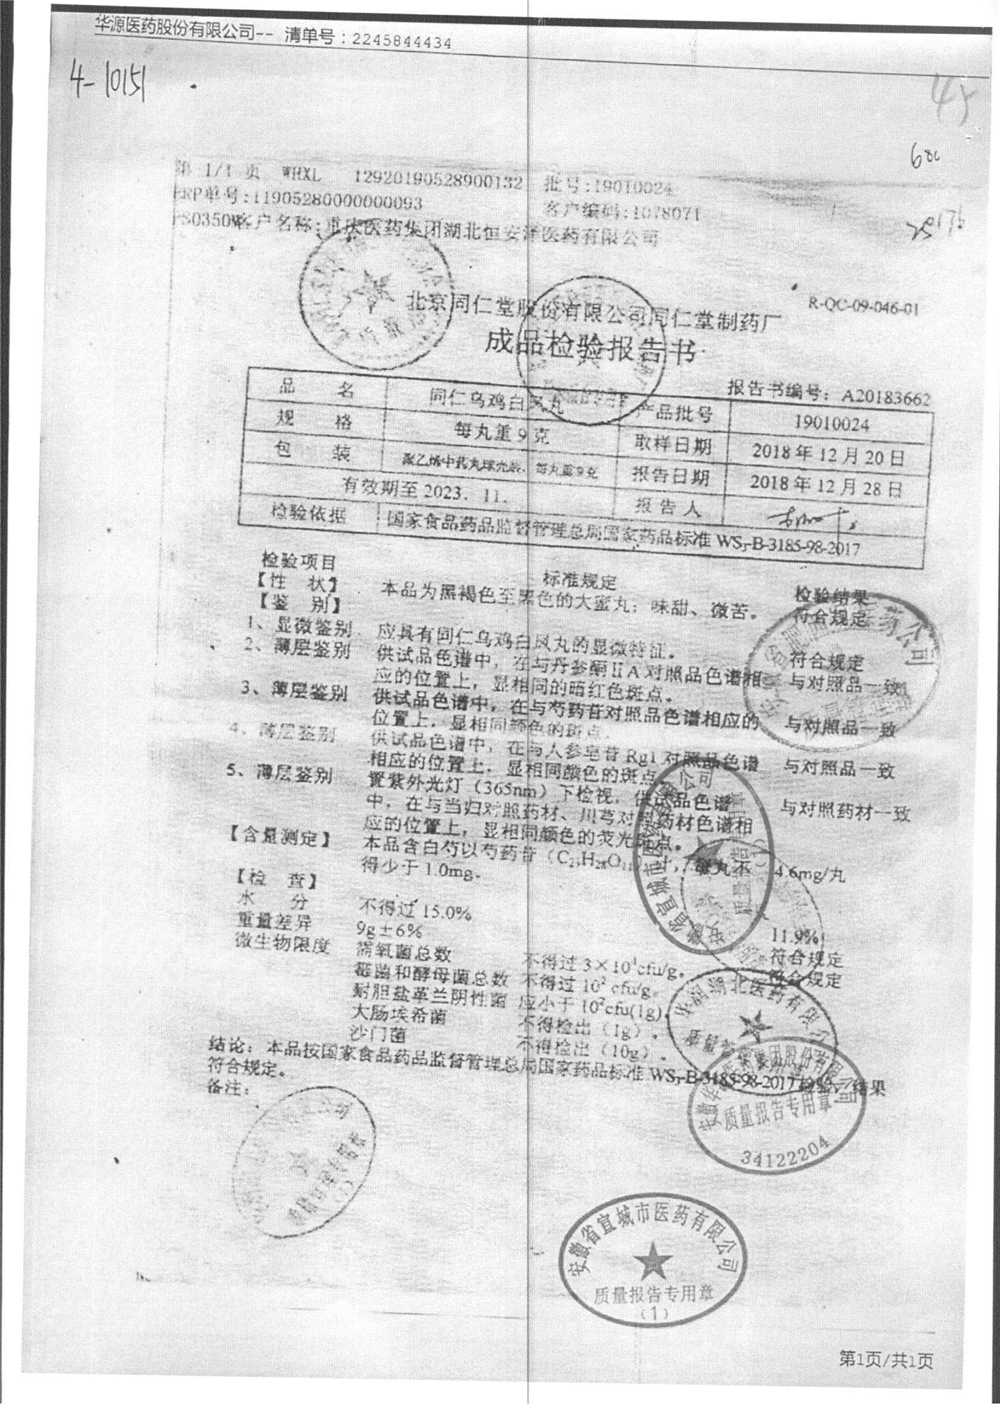 华源医药股份有限公司-- 清单号：2245844434
4-10151
45
600
第 1/1 页 WHXL 12920190528900132 批号:19010024
ERP单号:11905280000000093 客户编码:1078071
FS0350W客户名称:重庆医药集团湖北恒安泽医药有限公司
R-QC-09-046-01
北京同仁堂股份有限公司同仁堂制药厂
成品检验报告书
报告书编号：A20183662
品 名 同仁乌鸡白凤丸 产品批号 19010024
规 格 每丸重9克 取样日期 2018年12月20日
包 装 聚乙烯中药丸球壳装，每丸重9克 报告日期 2018年12月28日
有效期至 2023. 11. 报 告 人
检验依据 国家食品药品监督管理总局国家药品标准 WS₃-B-3185-98-2017
检验项目 标准规定 检验结果
【性 状】 本品为黑褐色至黑色的大蜜丸；味甜、微苦。 符合规定
【鉴 别】
1、显微鉴别 应具有同仁乌鸡白凤丸的显微特征。 符合规定
2、薄层鉴别 供试品色谱中，在与丹参酮ⅡA对照品色谱相 与对照品一致
应的位置上，显相同的暗红色斑点。
3、薄层鉴别 供试品色谱中，在与芍药苷对照品色谱相应的 与对照品一致
位置上，显相同颜色的斑点。
4、薄层鉴别 供试品色谱中，在与人参皂苷 Rg1 对照品色谱 与对照品一致
相应的位置上，显相同颜色的斑点。
5、薄层鉴别 置紫外光灯（365nm）下检视，供试品色谱 与对照药材一致
中，在与当归对照药材、川芎对照药材色谱相
应的位置上，显相同颜色的荧光斑点。
【含量测定】 本品含白芍以芍药苷（C₂₃H₂₈O₁₁）计，每丸不 4.6mg/丸
得少于 1.0mg。
【检 查】
水 分 不得过 15.0% 11.9%
重量差异 9g±6% 符合规定
微生物限度 需氧菌总数 不得过 3×10⁴cfu/g。 符合规定
霉菌和酵母菌总数 不得过 10² cfu/g。
耐胆盐革兰阴性菌 应小于 10²cfu(1g)。
大肠埃希菌 不得检出（1g）。
沙门菌 不得检出（10g）。
结论：本品按国家食品药品监督管理总局国家药品标准 WS₃-B-3185-98-2017检验，结果
符合规定。
备注：
华润湖北医药有限公司
安徽华源医药集团股份有限公司
质量报告专用章
34122204
安徽省宣城市医药有限公司
质量报告专用章
（1）
第1页/共1页